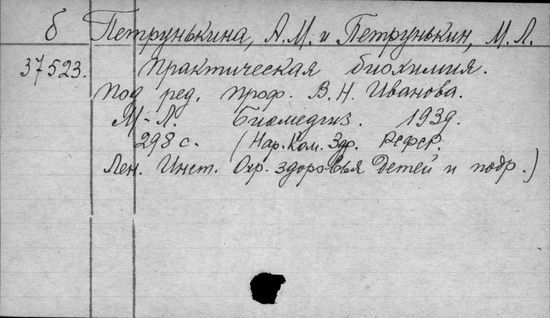 б Петрунькина, А.М. и Петрунькин, М.Л.
37523. Практическая биохимия.
Под ред. проф. В.Н. Иванова.
М-Л. Биомедгиз.
298 с. (Нар. Ком. Здр. РСФСР.
Лен. Инст. Охр. здоровья детей и подр.)